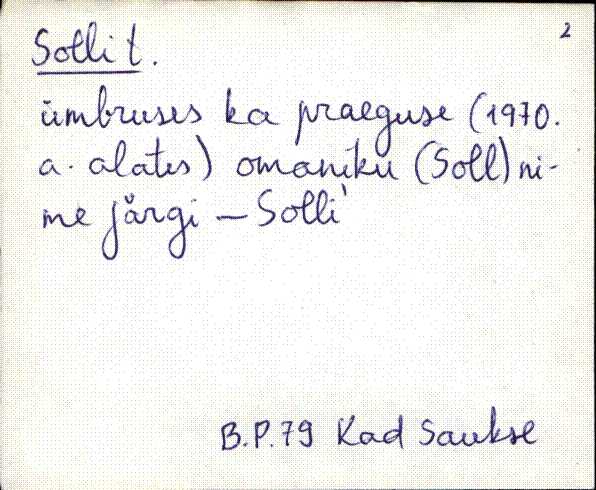 2
Solli t.
ümbruses ka praeguse (1970.
a. alates) omaniku (Soll) ni-
me järgi – Solli`
B.P.79 Kad Saukse